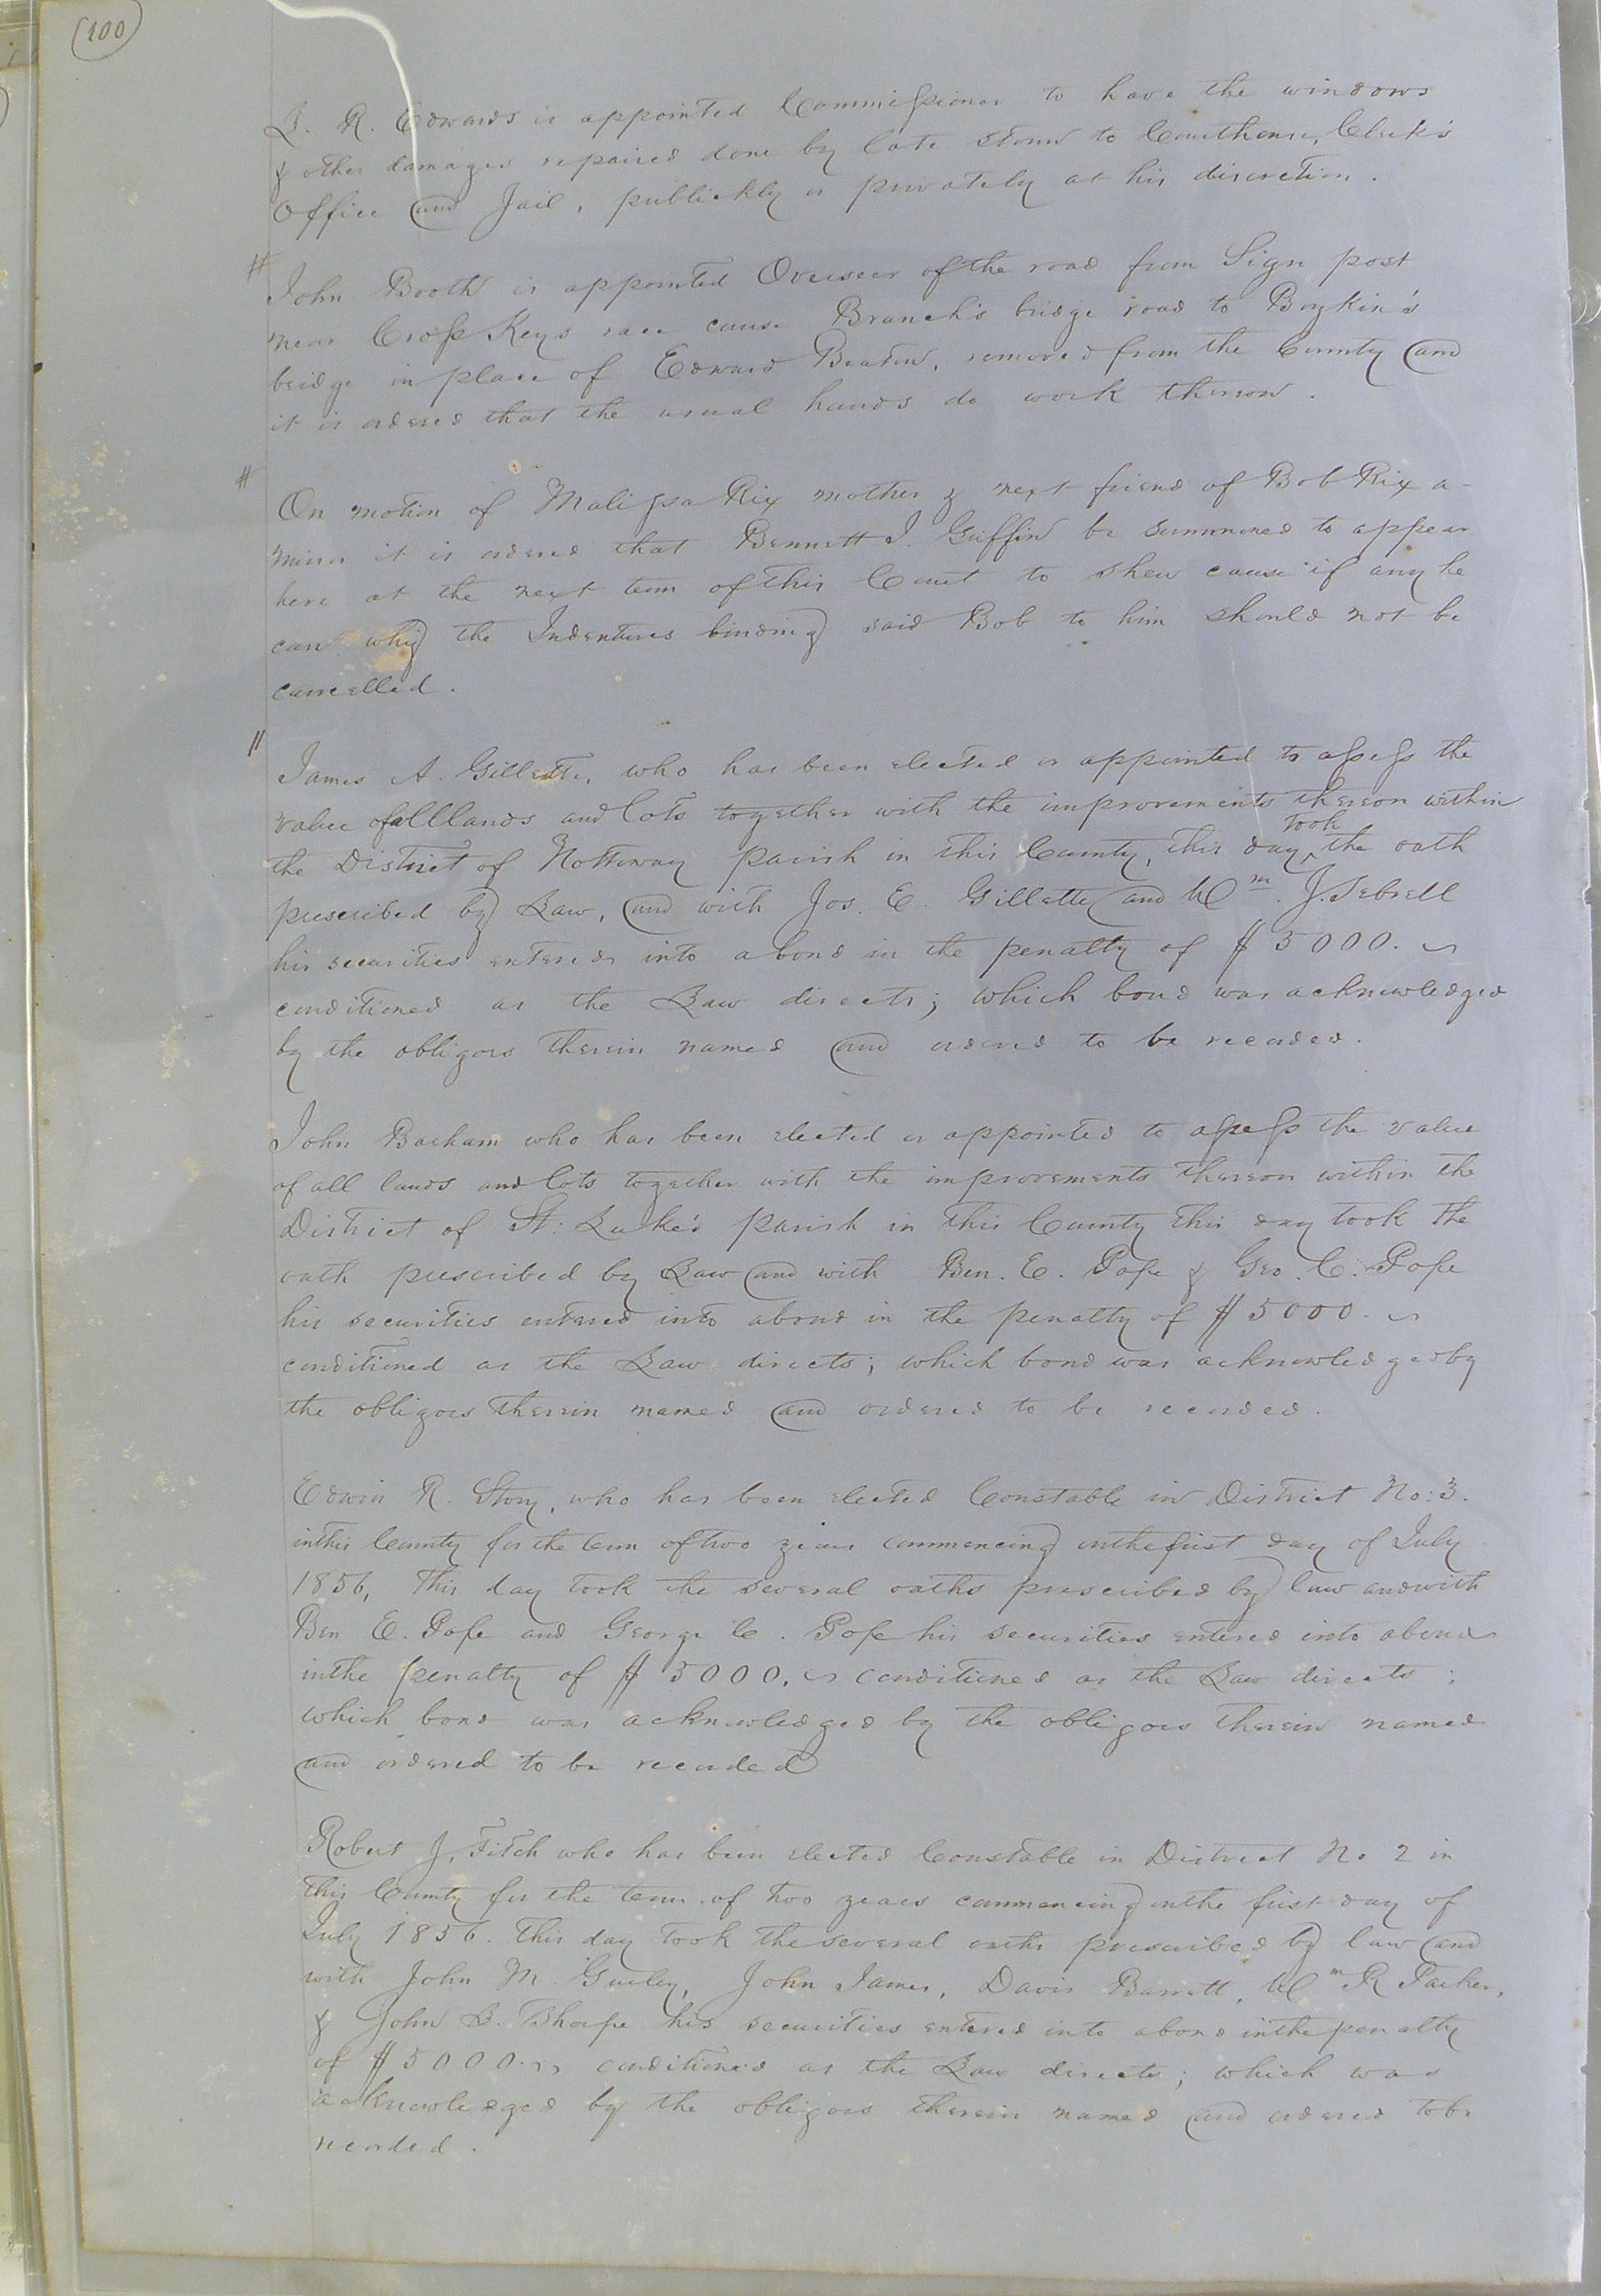 100
L. R. Edwards is appointed Commissioner to have the windows
& other damages repaired done by late storm to Courthouse, Clerk's
Office and Jail, publickly or privately at his discretion.
#
John Booth is appointed Overseer of the road from Sign post
near Cross Keys race cause Branch's bridge road to Boykin's
bridge in place of Edward Beaton, removed from the County and
it is ordered that the usual hands do work thereon.
#
On motion of Malissa Rix mother & next friend of Bob Rix a
minor it is ordered that Bennett J. Griffin be summoned to appear
here at the next term of this Court to shew cause if any he
can why the Indentures binding said Bob to him should not be
cancelled.
"
James A. Gillette, who has been elected or appointed to assess the
value of all lands and lots together with the improvements thereon within
took
the District of Nottoway parish in this County, this day ^ the oath
prescribed by Law, and with Jos. E. Gillette and Wm. J. Sebrell
his securities entered into a bond in the penalty of $5000.
conditioned as the Law directs; which bond was acknowledged
by the obligors therein named and ordered to be recorded.
John Barham who has been elected or appointed to assess the value
of all lands and lots together with the improvements thereon within the
District of St. Luke's parish in this County this day took the
oath prescribed by Law and with Ben. E. Pope & Geo. C. Pope
his securities entered into a bond in the penalty of $5000.
conditioned as the Law directs; which bond was acknowledged by
the obligors therein named and ordered to be recorded.
Edwin R. Story, who has been elected Constable in District No: 3.
in this County for the term of two years commencing on the first day of July
1856, this day took the several oaths prescribed by law and with
Ben E. Pope and George C. Pope his securities entered into a bond
in the penalty of $5000. conditioned as the Law directs;
which bond was acknowledged by the obligors therein named
and ordered to be recorded
Robert J. Fitch who has been elected Constable in District No 2 in
this County for the term of two years commencing on the first day of
July 1856. this day took the several oaths prescribed by law and
with John M. Gurley, John James, Davis Barrett, Wm R Parker,
& John B. Thorpe his securities entered into a bond in the penalty
of $5000. conditioned as the Law directs; which was
acknowledged by the obligors therein named and ordered to be
recorded.